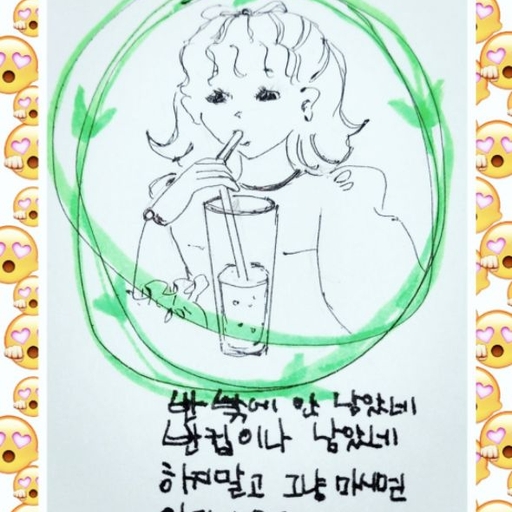 반 밖에 안 남았네
반컵이나 남았네
하지말고 그냥 마시면